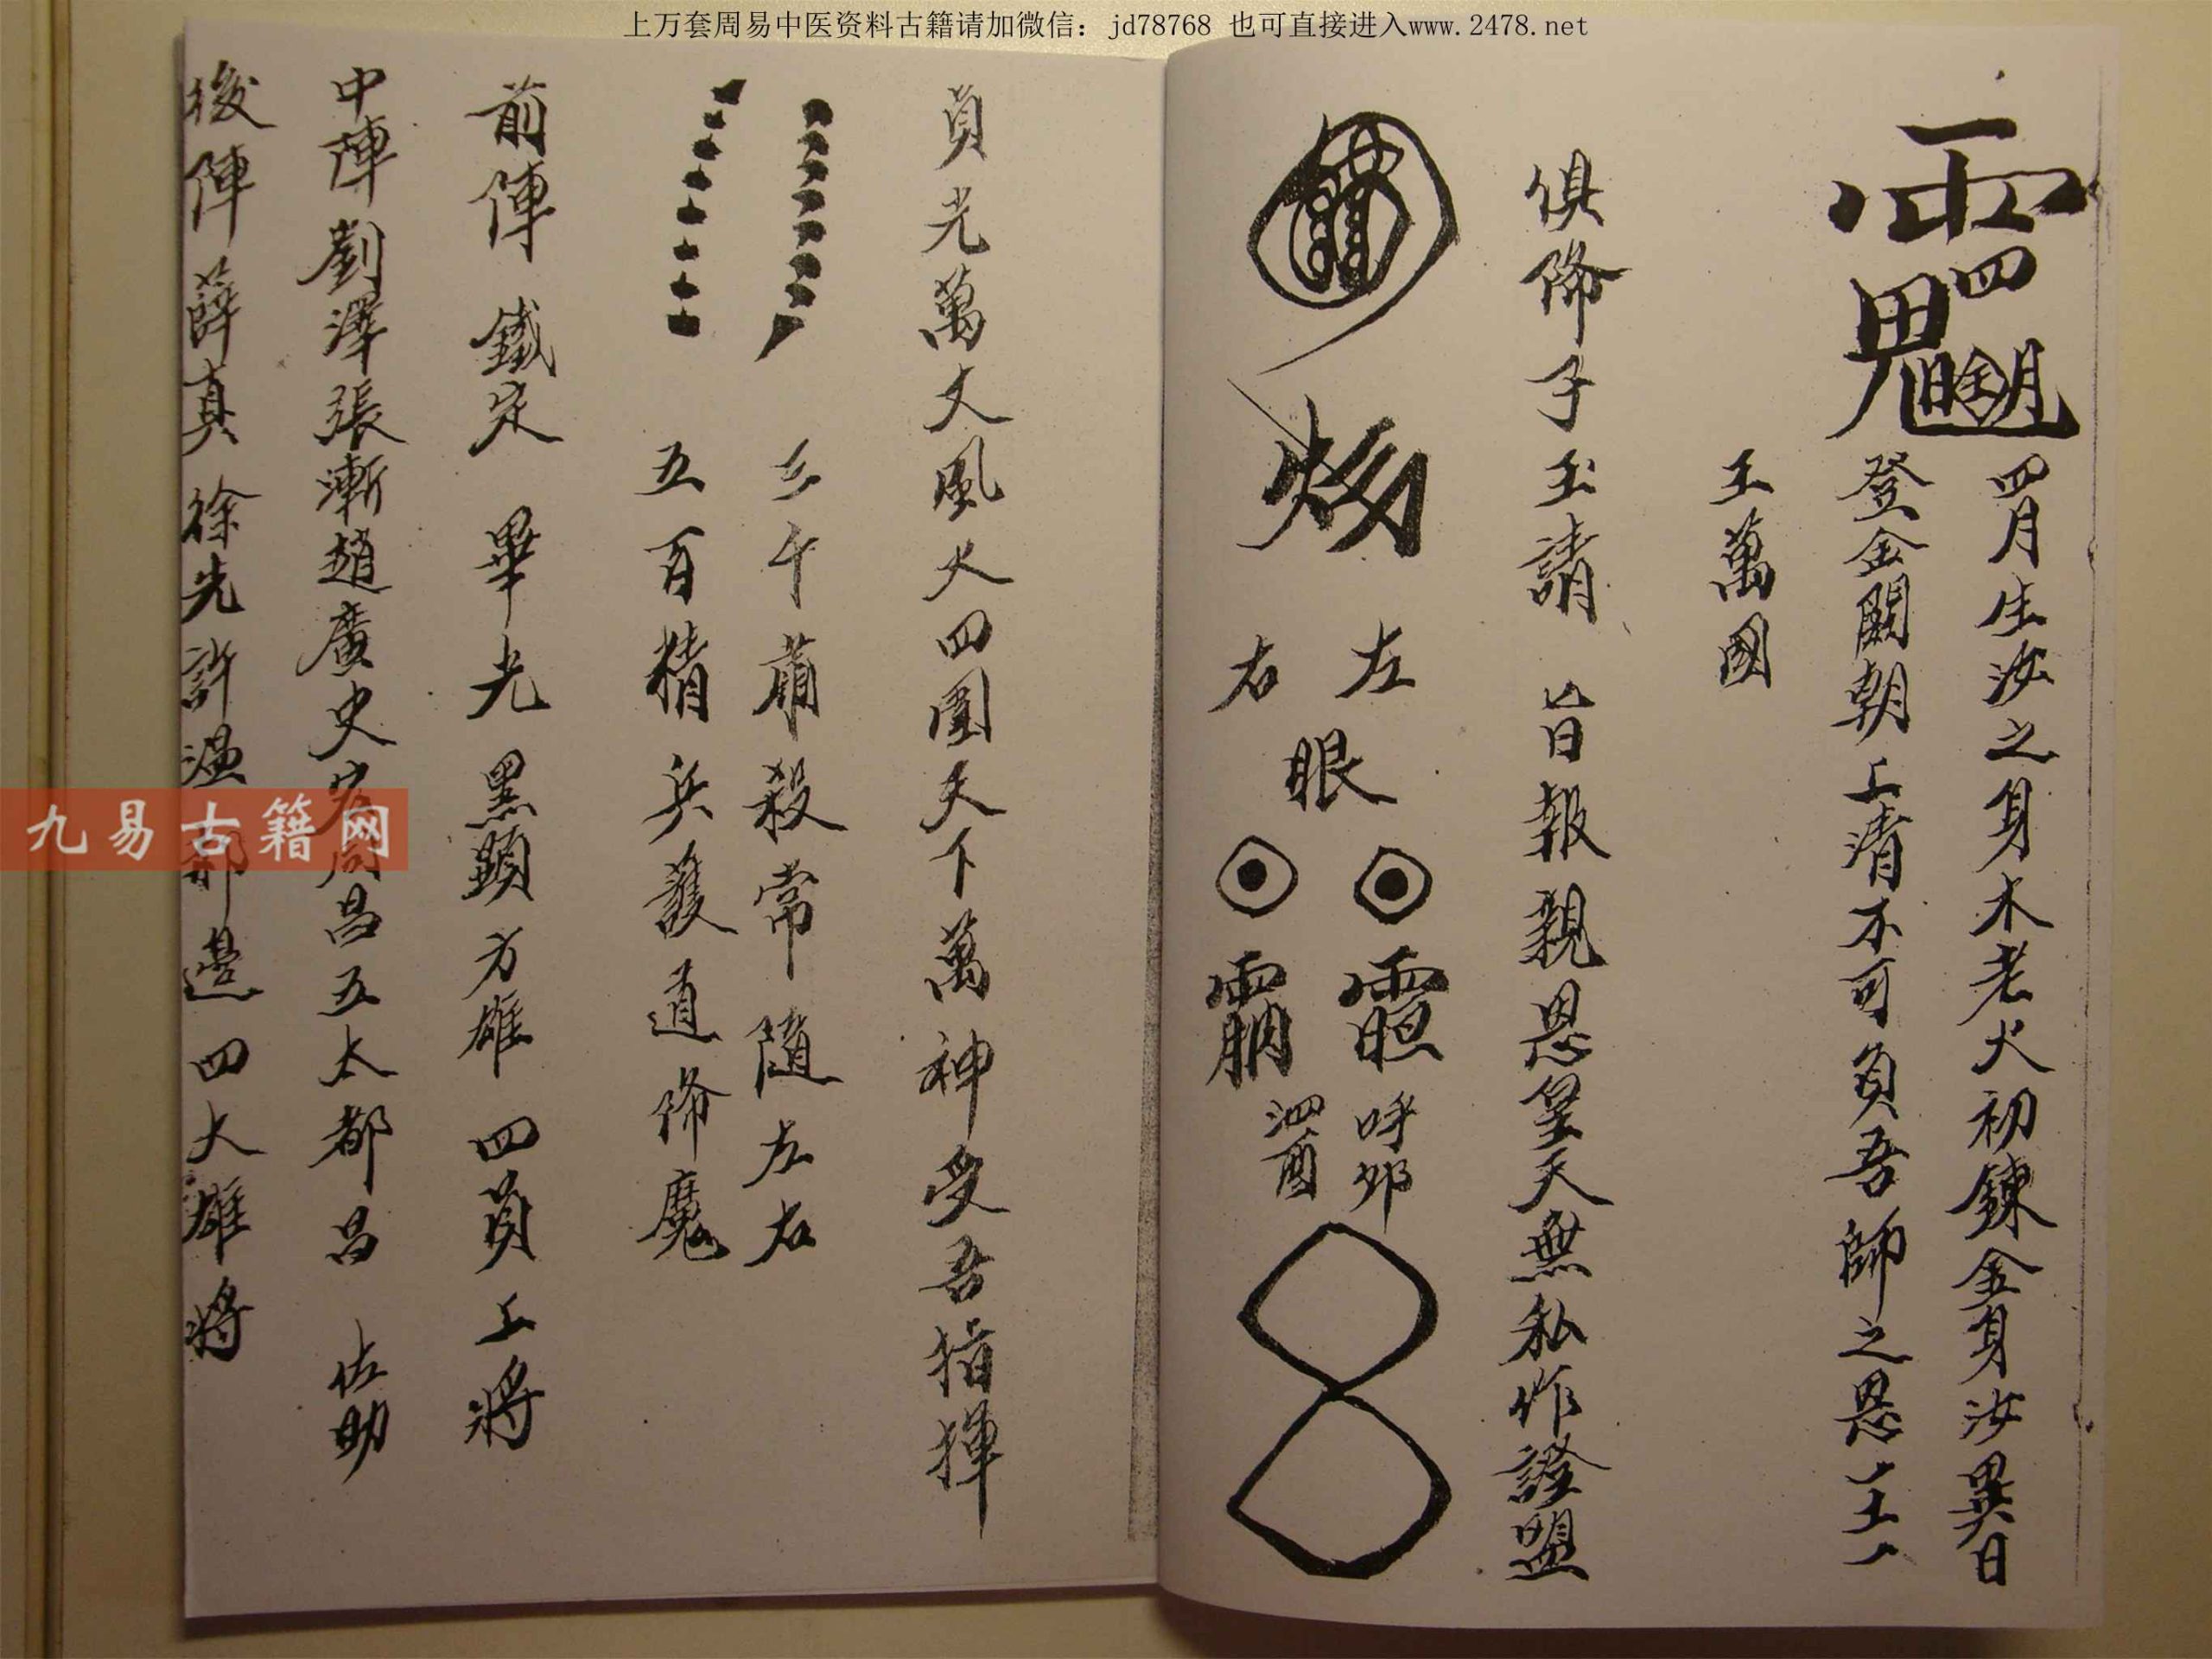 上万套周易中医资料古籍请加微信：jd78768 也可直接进入www.2478.net
四月生汝之身木老火初鍊金身汝異日
登金闕朝上清不可負吾師之恩
玉萬國
俱降子玉請 旨日報親恩皇天無私作證盟
左
右
眼
呼
酉
貞光萬丈風火四圍天下萬神受吾指揮
三千肅殺常隨左右
五百精兵護道降魔
前陣 鐵定 畢光 黑顯 方雄 四員上將
中陣 劉澤張漸趙廣史宏周昌五太都昌 佐助
後陣 薛真 徐先 許溫 邊四大雄將
九易古籍网